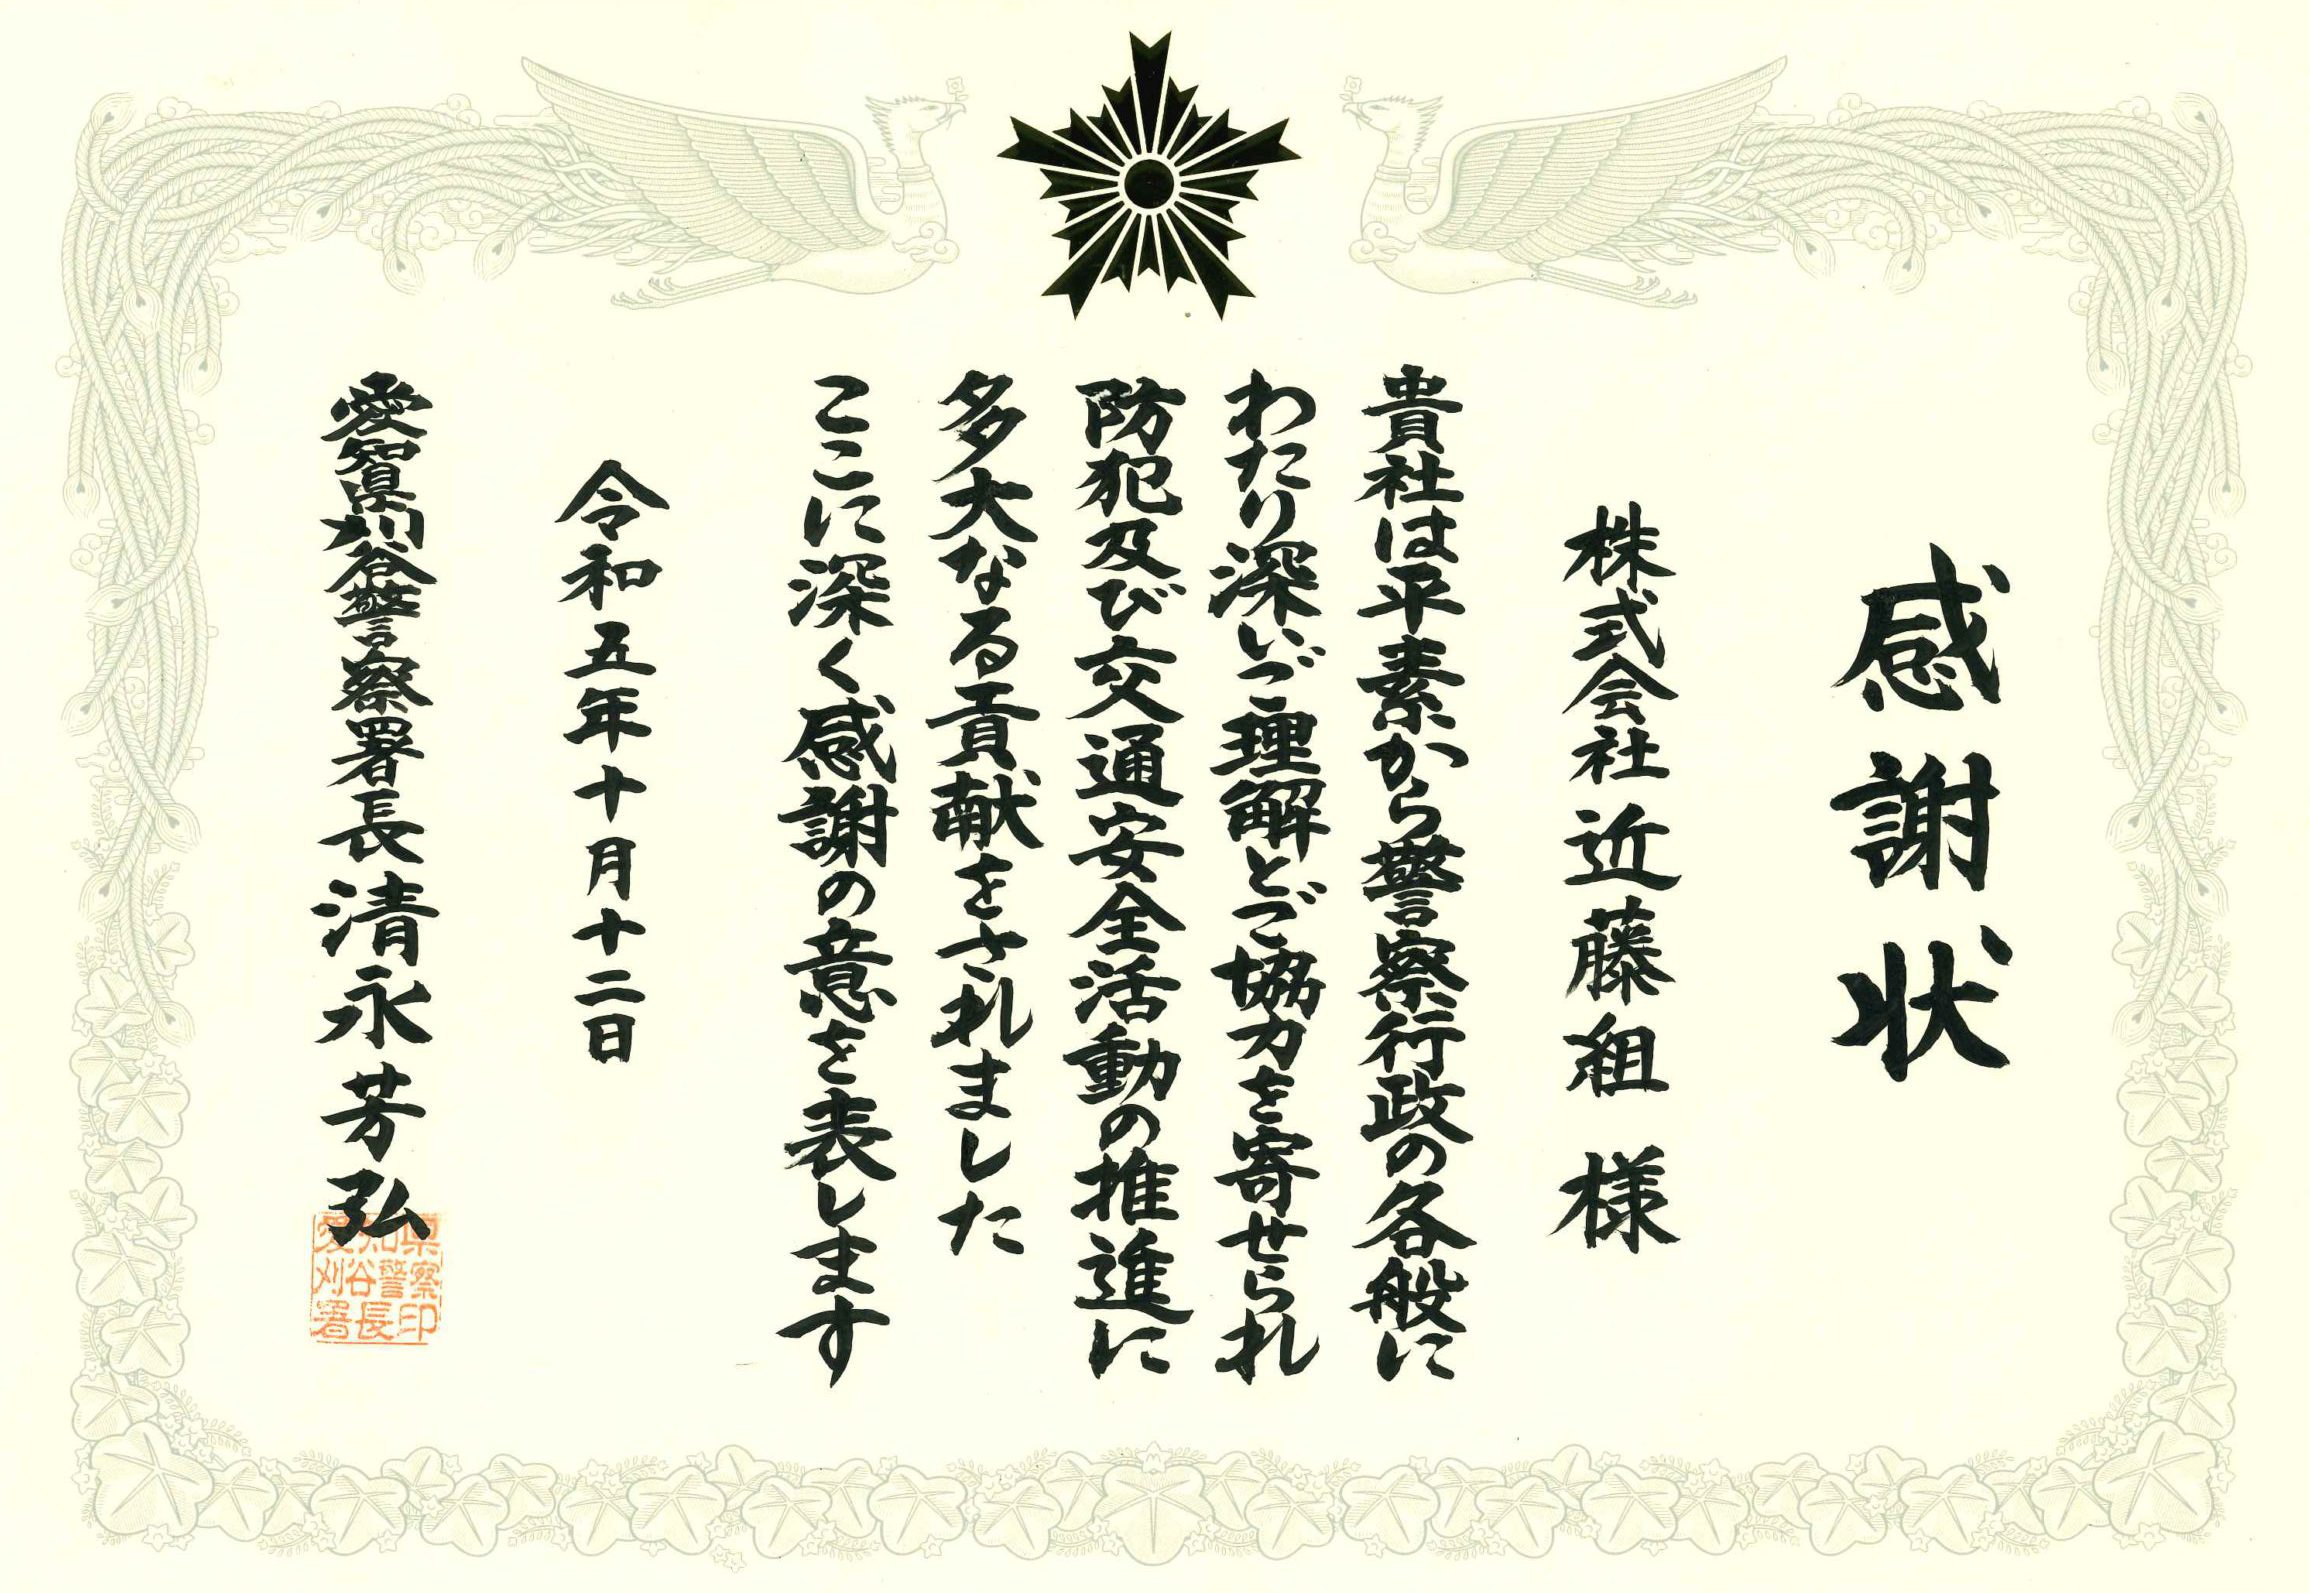 感謝状
株式会社近藤組 様
貴社は平素から警察行政の各般に
わたり深いご理解とご協力を寄せられ
防犯及び交通安全活動の推進に
多大なる貢献をされました
ここに深く感謝の意を表します
令和五年十月十二日
愛知県刈谷警察署長 清永芳弘
愛知県
刈谷警察
署長印